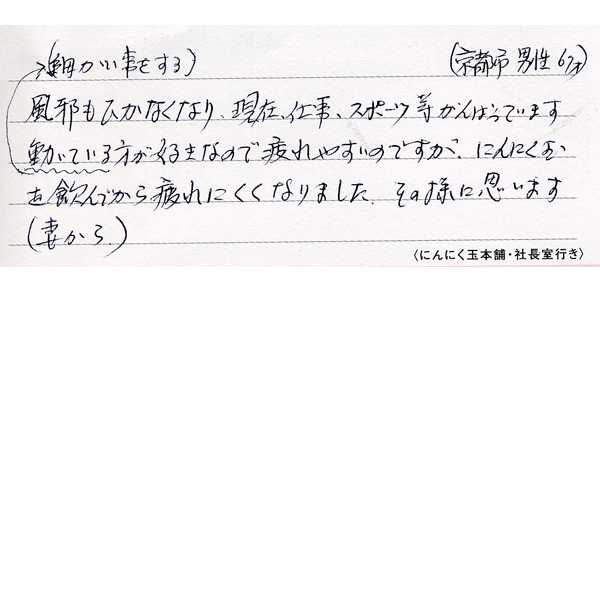 細かい事をする) (京都市 男性 67才)
風邪もひかなくなり、現在、仕事、スポーツ等がんばっています
動いている方が好きなので疲れやすいのですが、にんにく玉
を飲んでから疲れにくくなりました。その様に思います
(妻から)
〈にんにく玉本舗・社長室行き〉